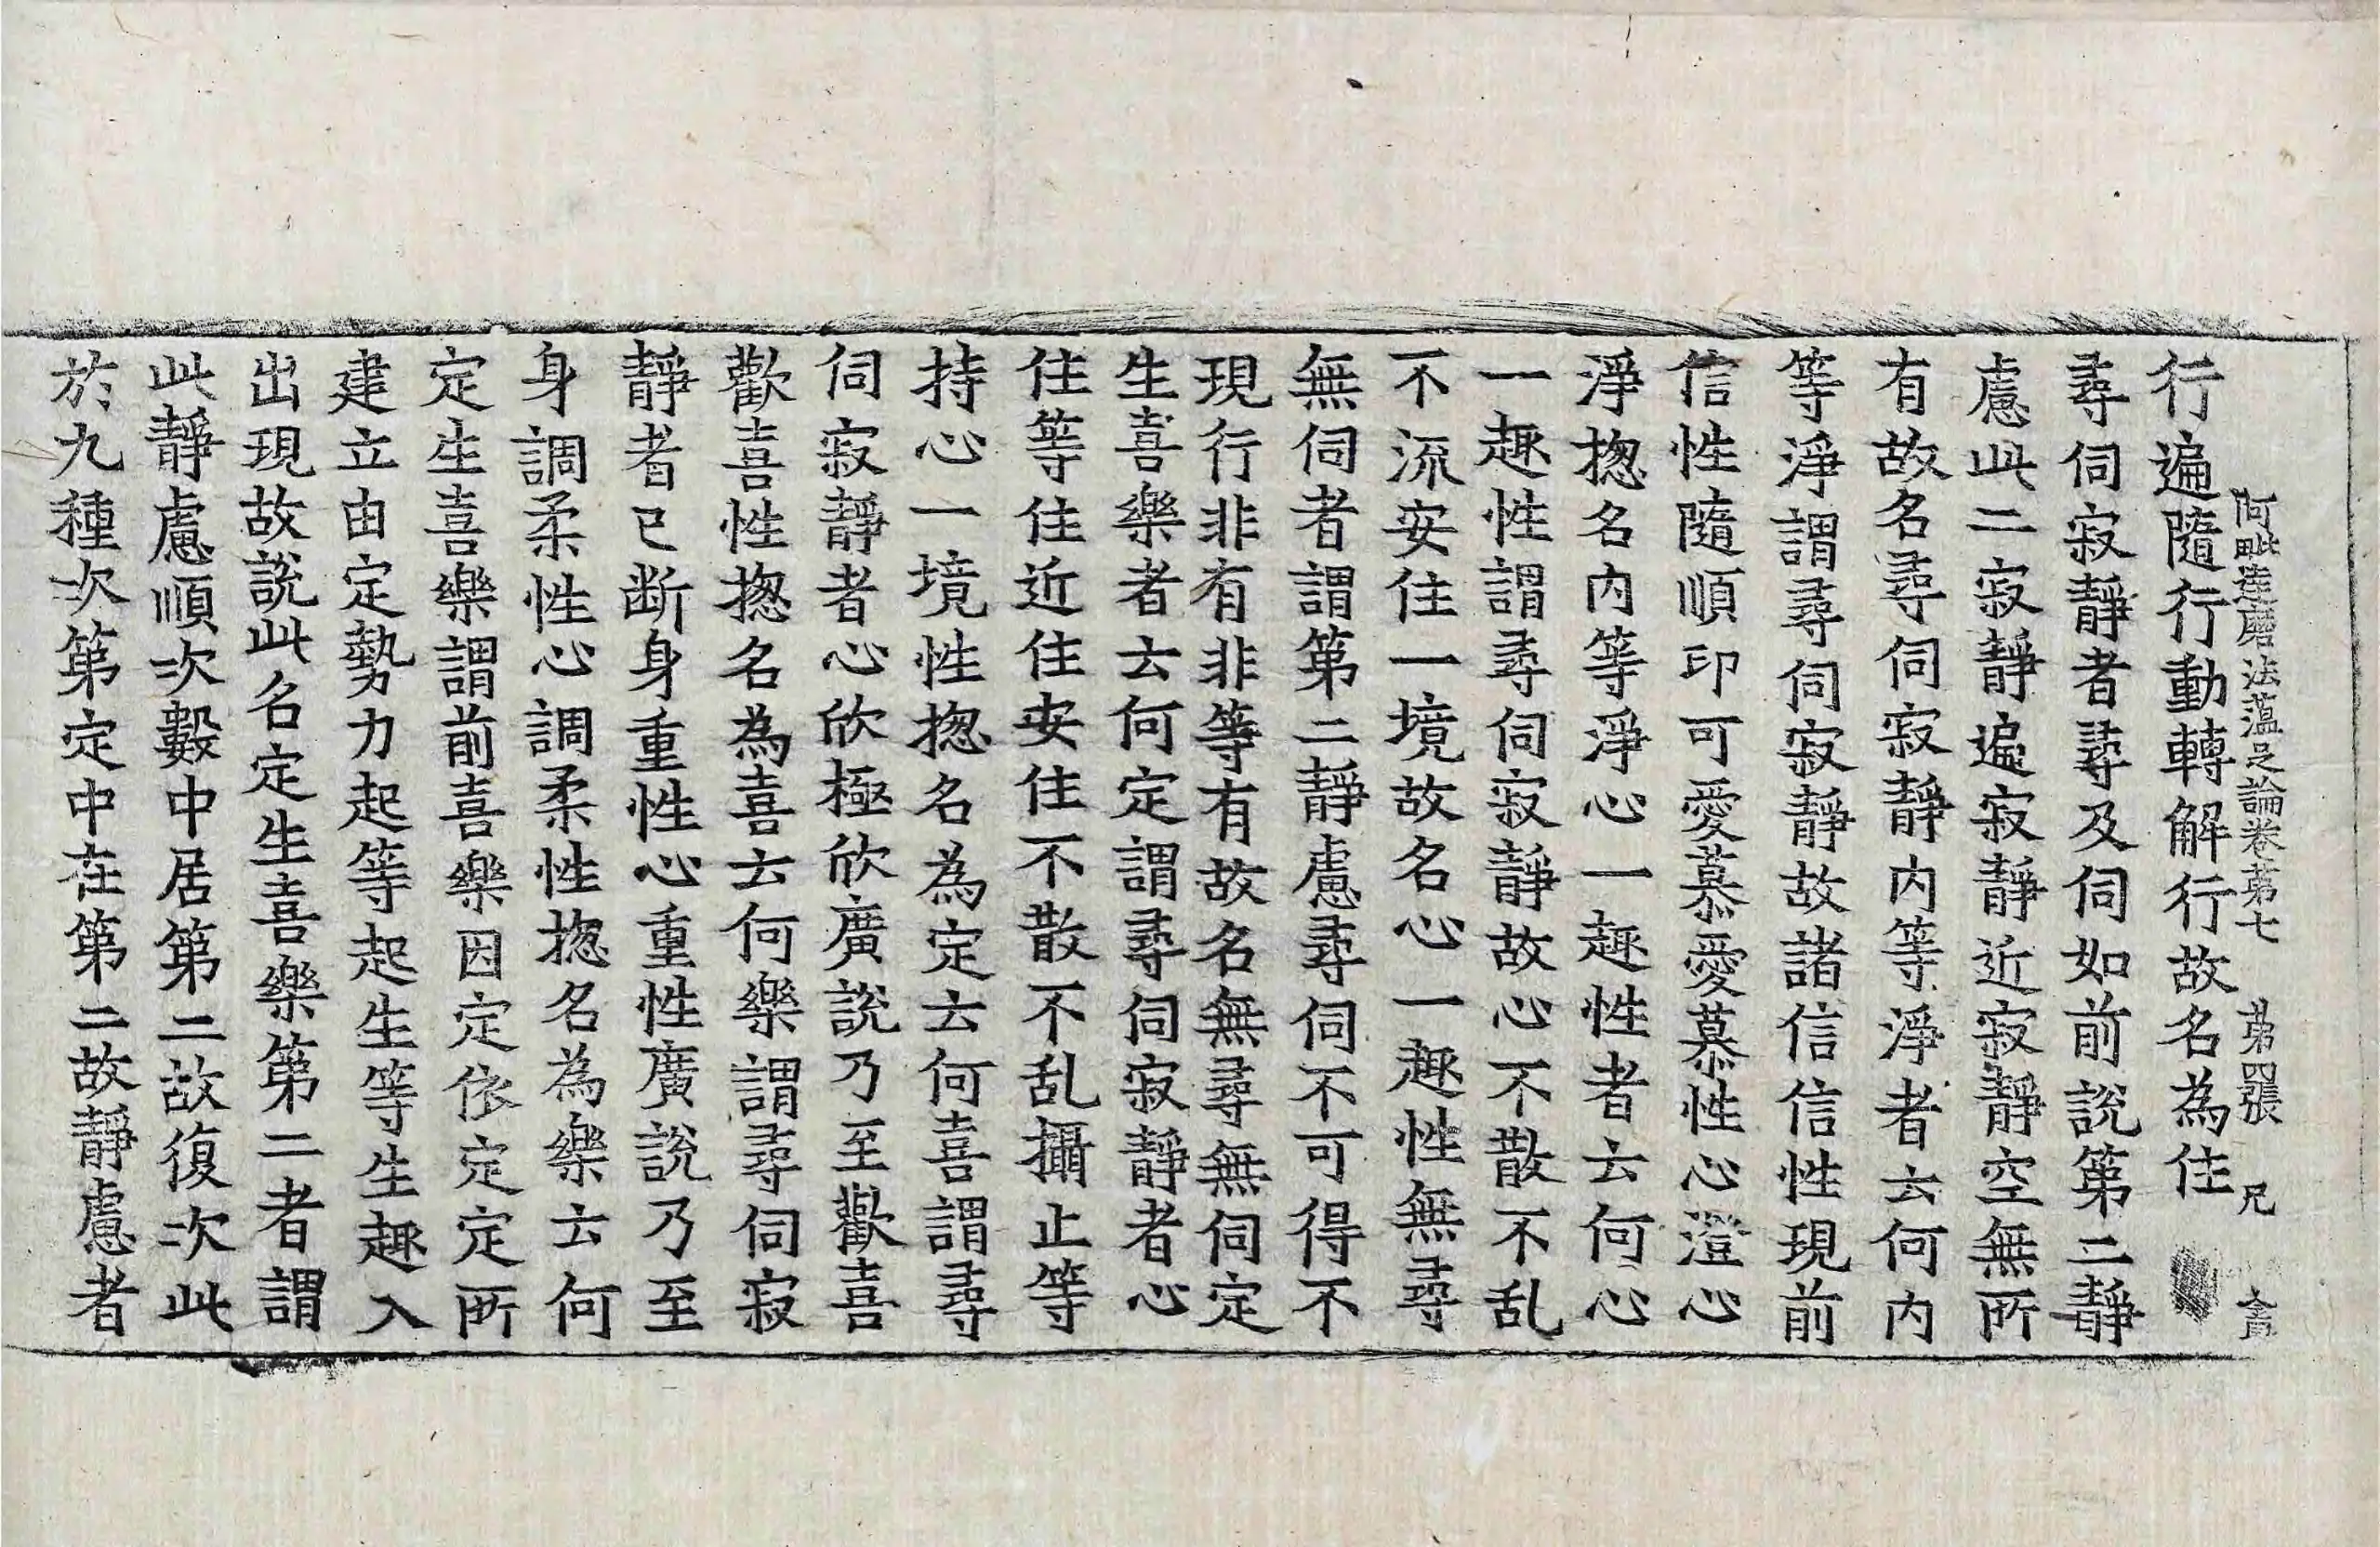 阿毗達磨法蘊足論卷第七　第四張　尺
行遍隨行動轉解行故名為住
尋伺寂靜者尋及伺如前說第二靜
慮此二寂靜遍寂靜近寂靜空無所
有故名尋伺寂靜內等淨者云何內
等淨謂尋伺寂靜故諸信信性現前
信性隨順印可愛慕愛慕性心澄心
淨揔名內等淨心一趣性者云何心
一趣性謂尋伺寂靜故心不散不乱
不流安住一境故名心一趣性無尋
無伺者謂第二靜慮尋伺不可得不
現行非有非等有故名無尋無伺定
生喜樂者云何定謂尋伺寂靜者心
住等住近住安住不散不乱攝止等
持心一境性揔名為定云何喜謂尋
伺寂靜者心欣極欣廣說乃至歡喜
歡喜性揔名為喜云何樂謂尋伺寂
靜者已断身重性心重性廣說乃至
身調柔性心調柔性揔名為樂云何
定生喜樂謂前喜樂因定依定定所
建立由定勢力起等起生等生趣入
出現故說此名定生喜樂第二者謂
此靜慮順次數中居第二故復次此
於九種次第定中在第二故靜慮者